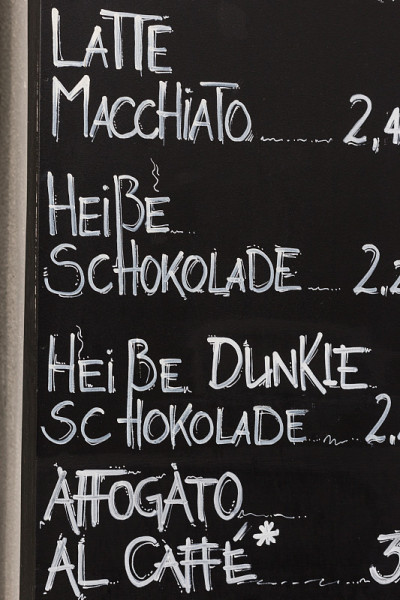 LATTE
MACCHIATO ........ 2,4
HEIßE
SCHOKOLADE .... 2,2
HEIßE DUNKLE
SCHOKOLADE .... 2,
AFFOGATO
AL CAFFÉ* ........ 3